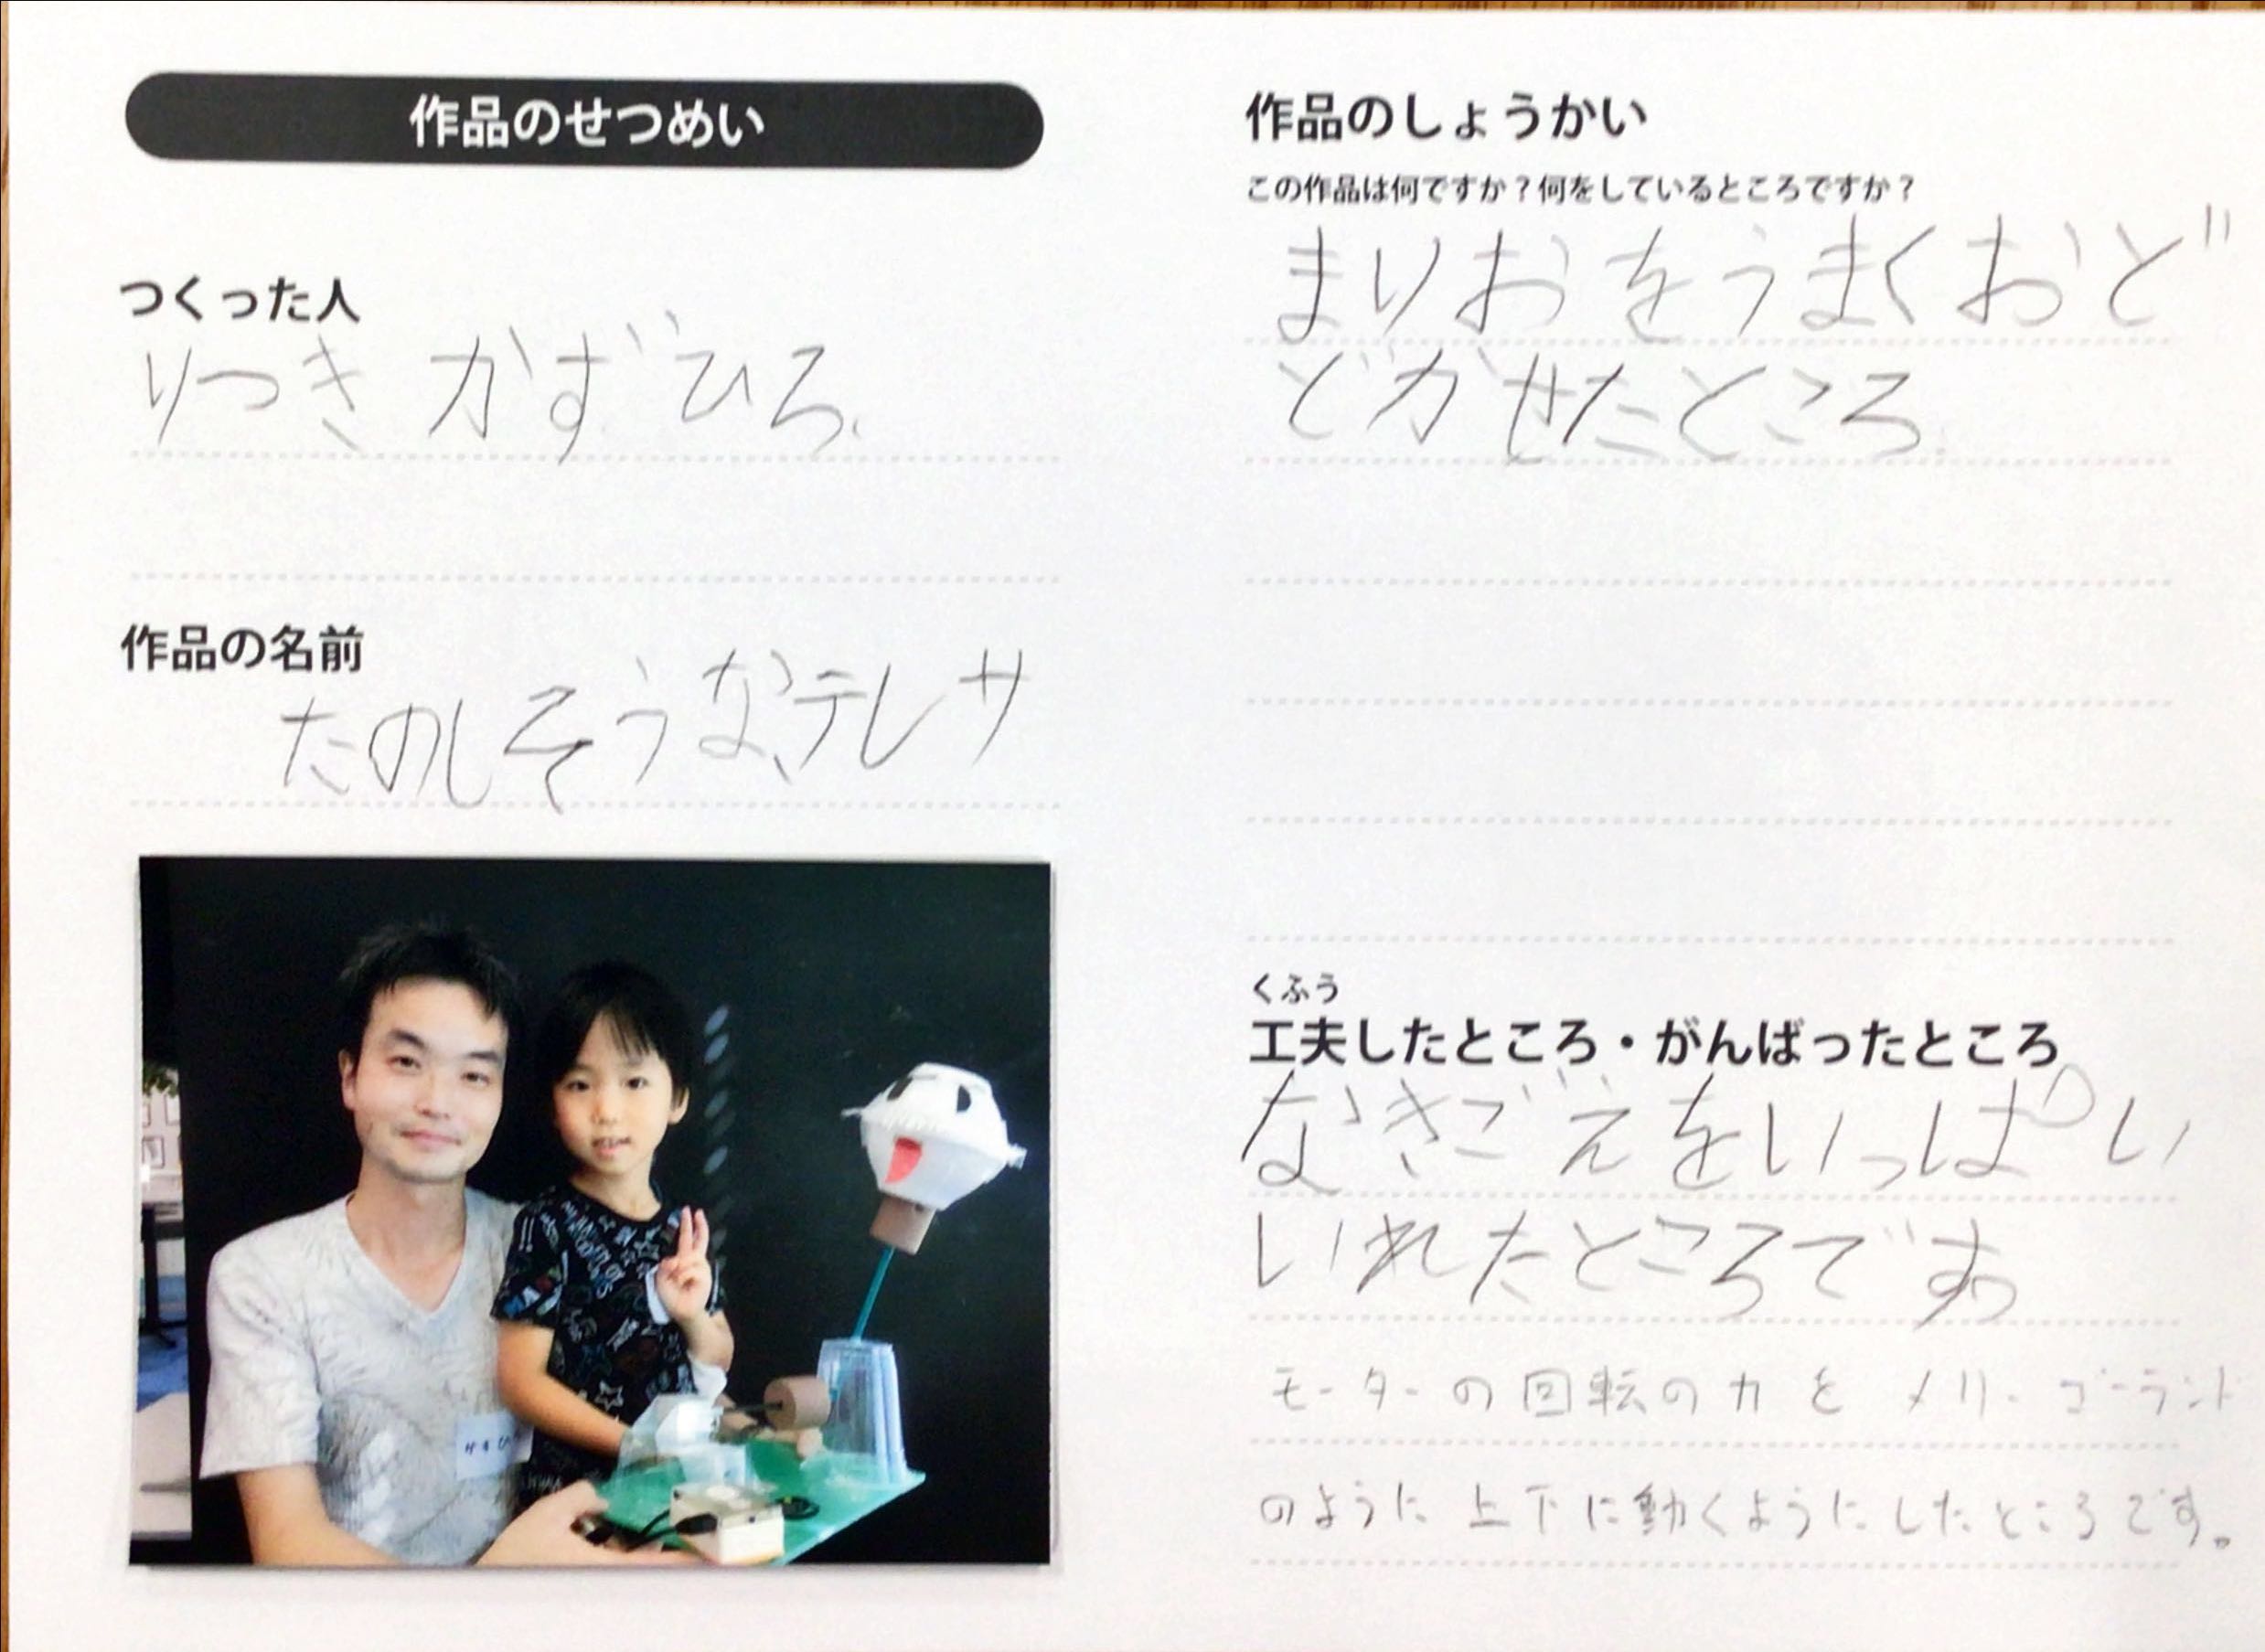 作品のせつめい
つくった人
りつき かずひろ
作品の名前
たのしそうな、テレサ
作品のしょうかい
この作品は何ですか？何をしているところですか？
まりおをうまくおど
どかせたところ
くふう
工夫したところ・がんばったところ
なきごえをいっぱい
いれたところです
モーターの回転の力を メリーゴーランド
のように 上下に動くようにしたところです。